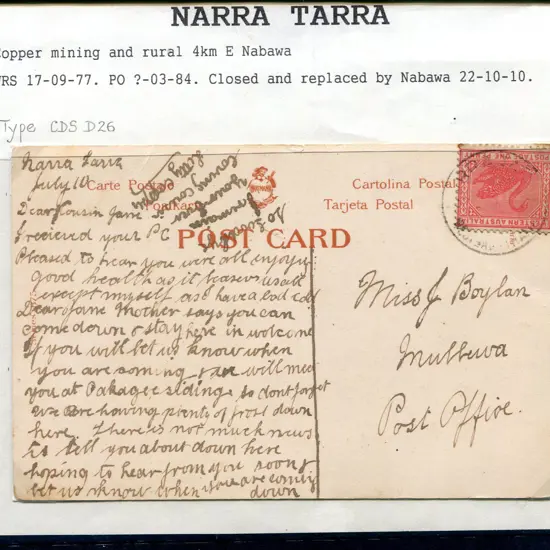 NARRA TARRA
Copper mining and rural 4km E Nabawa
WRS 17-09-77. PO ?-03-84. Closed and replaced by Nabawa 22-10-10.
Type CDS D26
Narra Tarra
July 10
Carte Postale
Postkarte
Cartolina Postale
Tarjeta Postal
POST CARD
Dear Cousin Jane
I recieved your PC
Pleased to hear you were all enjoy
good health as it leaves us all
except myself as I have a bad cold
Dear Jane Mother says you can
come down & stay here in welcome
If you will let us know when
you are coming & will meet
you at siding so dont forget
we are having plenty of frost down
here. There is not much news
to tell you about down here
hoping to hear from you soon
let us know when you are coming
down
No
from
your
Cousin
Letty
Miss J Boylan
Mullewa
Post Office.
POSTAGE ONE PENNY
WESTERN AUSTRALIA